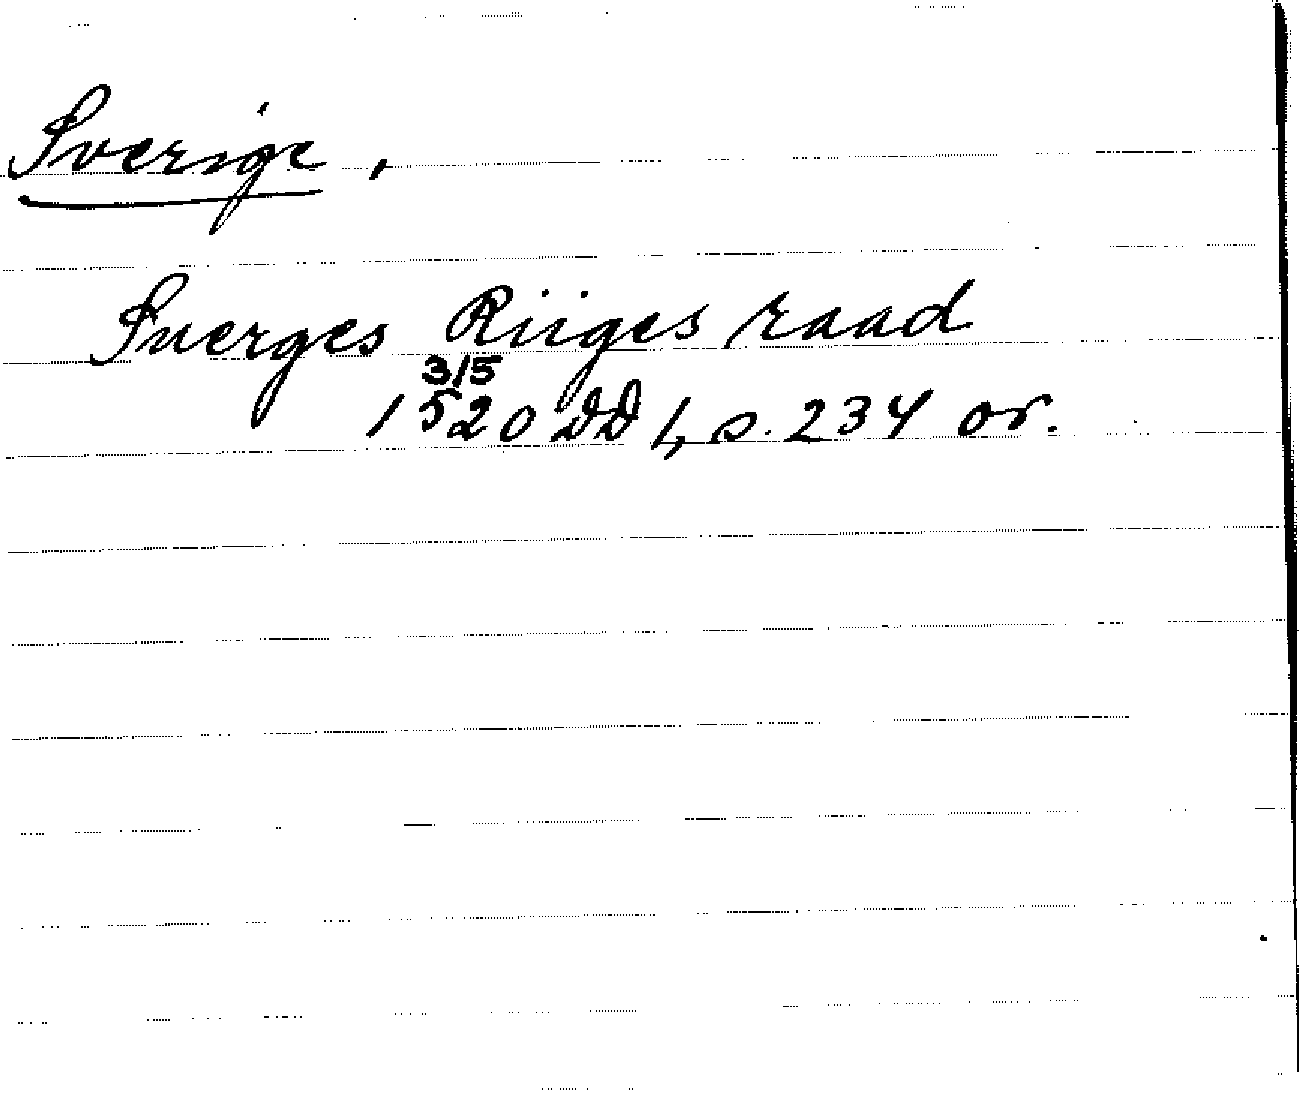 Sverige,
Suerges Riiges raad
3/5
1520 DD 1, s. 234 or.